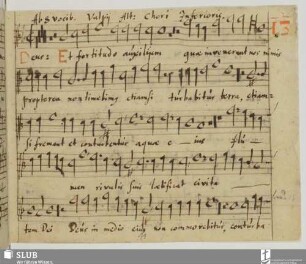 Ab 8 vocib. Vulpij Alt: Chori Inferioris.
15
Deus: Et fortitudo auxilium quæ invenerunt nos nimis
propterea non timebimus etiamsi turbabitur terra, etiam=
si fremant et conturbentur aquæ e ius flu=
men rivulis suis lætificat civita
tem Dei Deus in medio eius non commovebitur, conturba
SLUB
Wir führen Wissen.